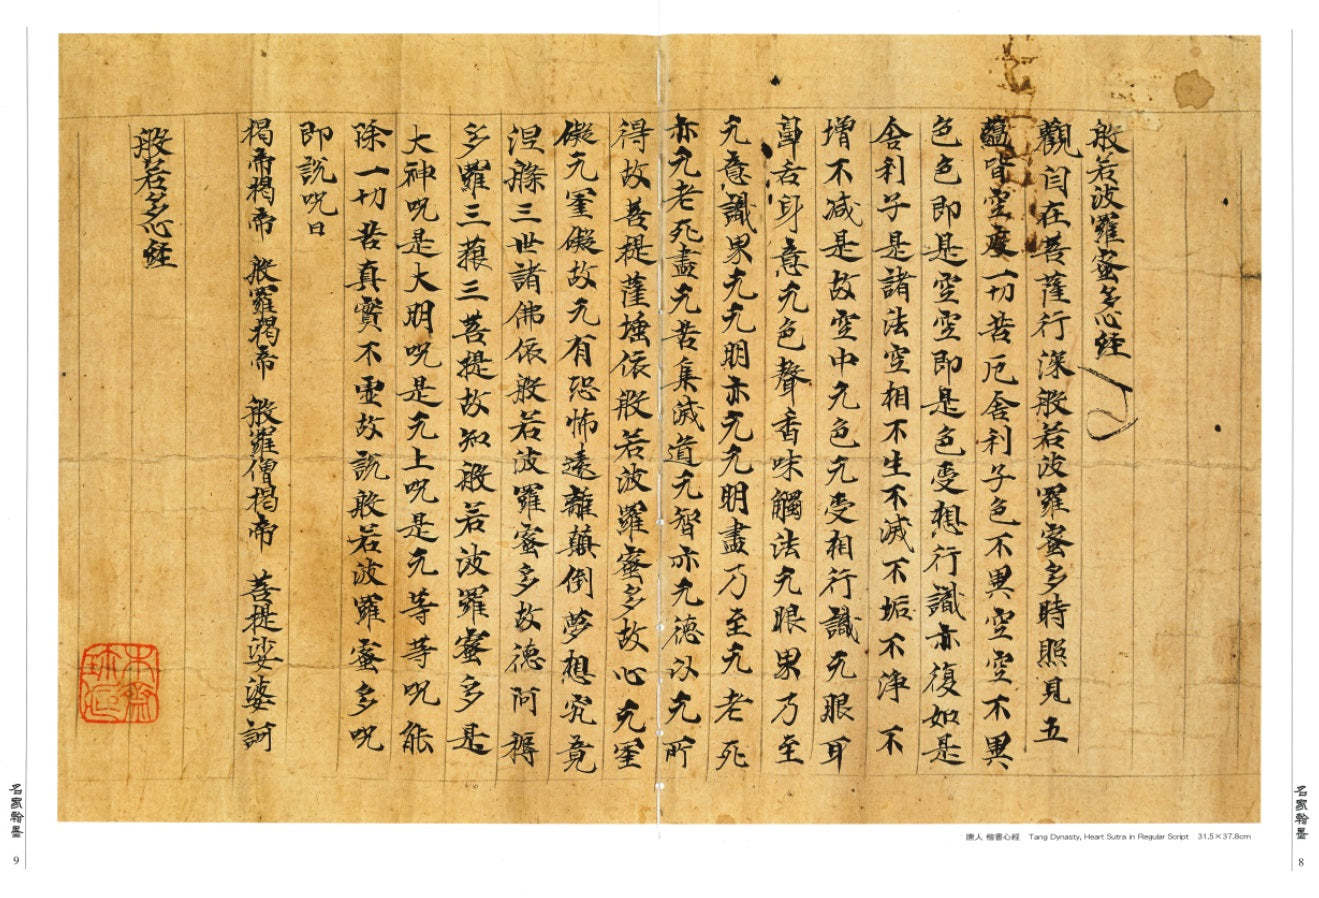 般若波羅蜜多心經
觀自在菩薩行深般若波羅蜜多時照見五
蘊皆空度一切苦厄舍利子色不異空空不異
色色即是空空即是色受想行識亦復如是
舍利子是諸法空相不生不滅不垢不淨不
增不減是故空中无色无受相行識无眼耳
鼻舌身意无色聲香味觸法无眼界乃至
无意識界无无明亦无无明盡乃至无老死
亦无老死盡无苦集滅道无智亦无德以无所
得故菩提薩埵依般若波羅蜜多故心无罣
礙无罣礙故无有恐怖遠離顛倒夢想究竟
涅槃三世諸佛依般若波羅蜜多故德阿耨
多羅三藐三菩提故知般若波羅蜜多是
大神呪是大明呪是无上呪是无等等呪能
除一切苦真實不虛故說般若波羅蜜多呪
即說呪曰
揭帝揭帝 般羅揭帝 般羅僧揭帝 菩提娑婆訶
般若多心經
唐人 楷書心經 Tang Dynasty, Heart Sutra in Regular Script 31.5×37.8cm
名家翰墨
8
名家翰墨
9